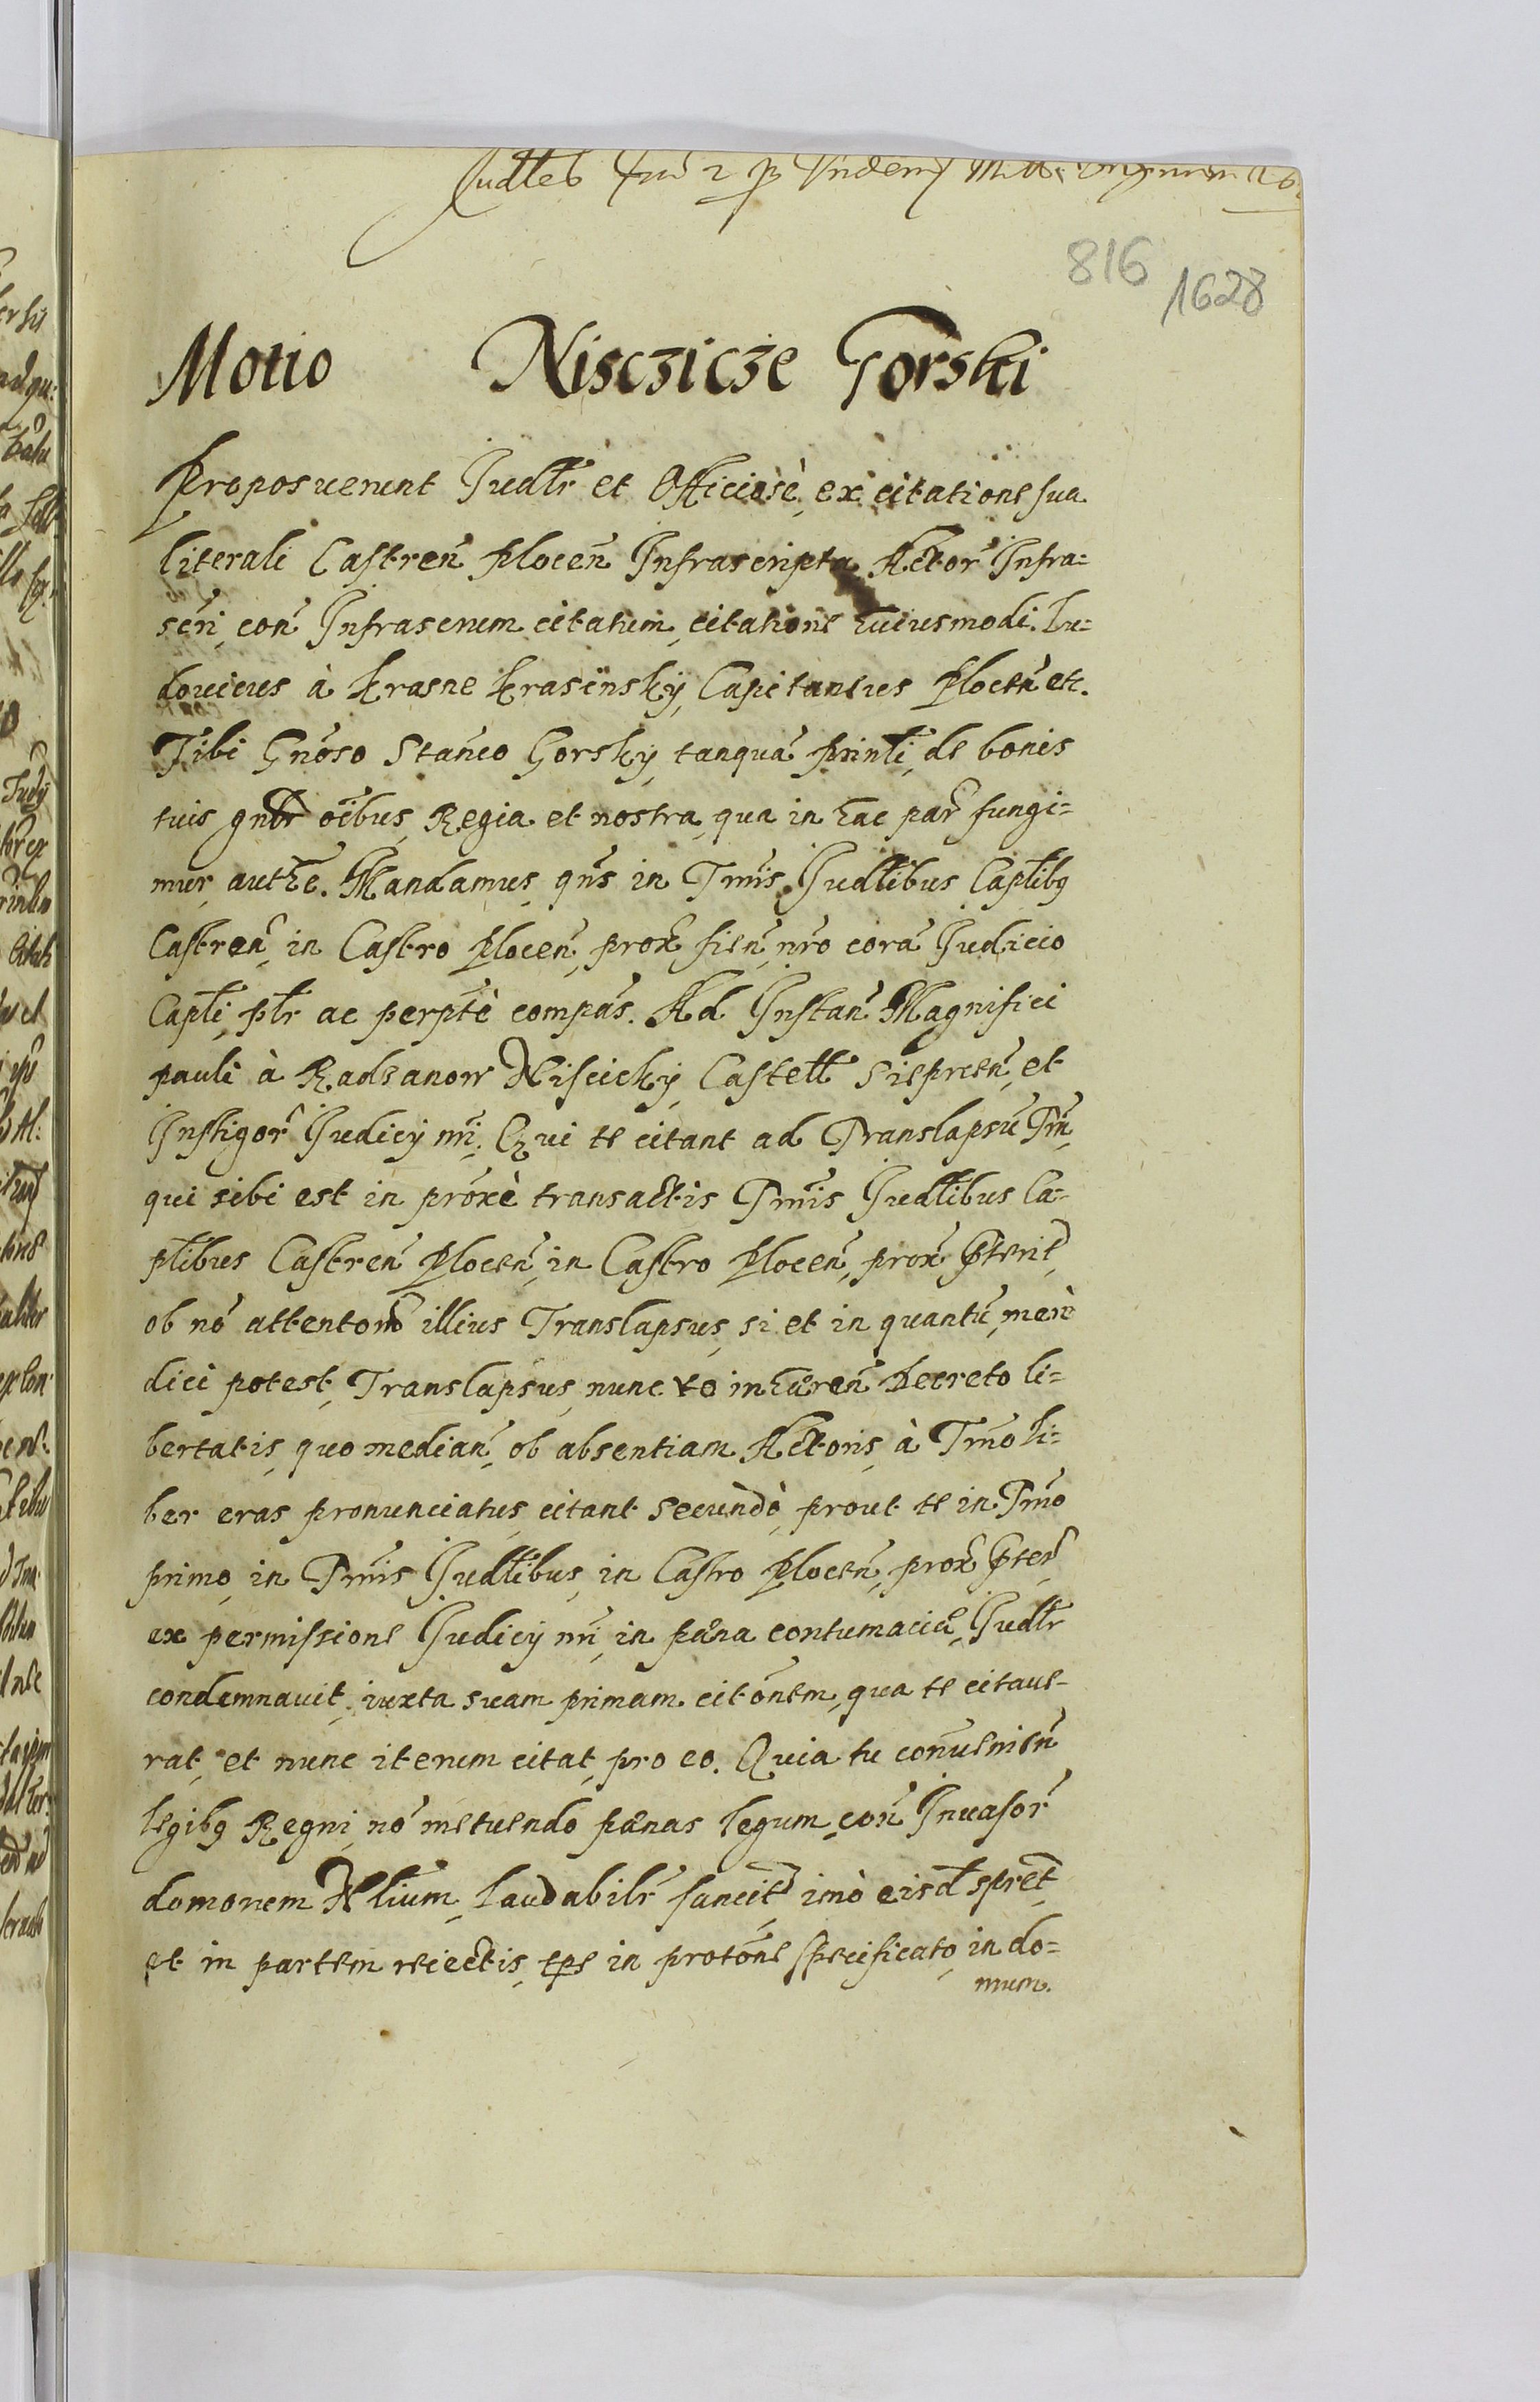 816
1628
Motio Nisczicze Gorski
Proposuerunt Judlr et Officiose, ex citatione sua
literali Castren Plocen Infrascripta, Actor Infra=
scri, con Infrascrum citatum, citatione huiusmodi. Lu=
douicus à Krasne Krasinsky, Capitaneus Plocen etc.
Tibi Gnoso Stanco Gorsky, tanqua prinli, de bonis
tuis gnlr oibus, Regia et nostra, qua in hac par fungi=
mur, authe. Mandamus, qns in Tmis Judlibus Caplibq
Castren, in Castro Plocen, prox fien, nro cora Judicio
Capli, plr ac perptè compas. Ad Instan Magnifici
Pauli à Radzanow Niscicky, Castell Sieprcen, et
Instigor Judicy nri. Qui te citant ad Translapsu Tmi,
qui sibi est in proxè transactis Tmis Judlibus Ca=
plibus Castren Plocen, in Castro Plocen, prox pterit,
ob no attentom illius Translapsus, si et in quantu, merè
dici potest, Translapsus, nunc vo inhæren Decreto li=
bertatis, quo median, ob absentiam Actoris, à Tmo li=
ber eras pronunciatus, citant secundò, prout te in Tmo
primo, in Tmis Judlibus, in Castro Plocen, prox pter,
ex permissione Judicy nri, in pæna contumaciæ, Judlr
condemnauit, iuxta suam primam citonem, qua te citaue=
rat, et nunc iterum citat, pro eo. Quia tu conuenien
legibq Regni, no metuendo pænas legum, con Inuasor
domorum Nlium, laudabilr sancit, imò eisd spret,
et in partem reiectis, tpe in protone specificato, in do=
mum.